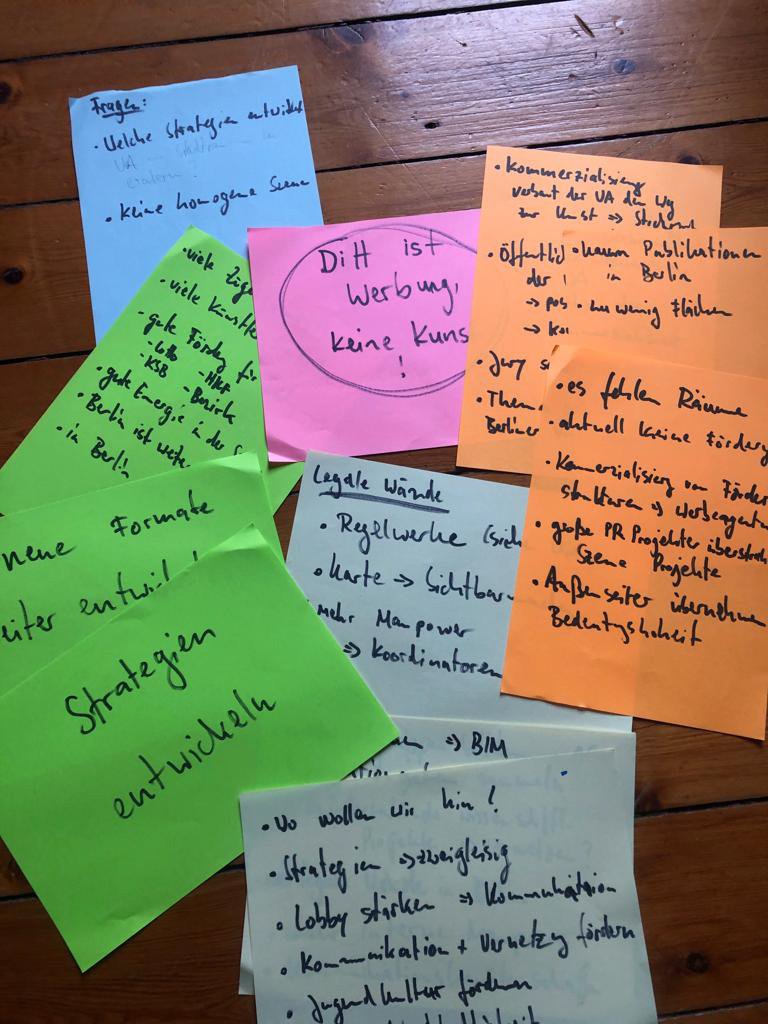 Fragen:
• Welche Strategien entwickelt
UA
• keine homogene Szene
• viele Züge
• viele Künstle
• gute Förderg für
- Lotto - HKF
- KSB - Bezirk
• gute Energie in der S
• Berlin ist weite
• in Berlin
Ditt ist
Werbung,
keine Kuns
!
• Kommerzialisierg
verbaut der UA den Weg
zur Kunst => Streetart
• Öffentlich
der
→ pos
→ Ko
• Jury s
• Them
Berliner
• kaum Publikationen
in Berlin
• zu wenig Flächen
• es fehlen Räume
• aktuell keine Förderg
• Kommerzialisierg von Förder
strukturen => Werbeagent
• große PR Projekter überstrah
Szene Projekte
• Außenseiter übernehmen
Bedeutungshoheit
neue Formate
eiter entwick
Strategien
entwickeln
Legale Wände
• Regelwerke (sich
• Karte => Sichtbar
mehr Manpower
=> Koordinatoren
en => BIM
• Wo wollen wir hin?
• Strategien => zweigleisig
• Lobby stärken => Kommunikation
• Kommunikation + Vernetzg fördern
• Jugendkultur fördern